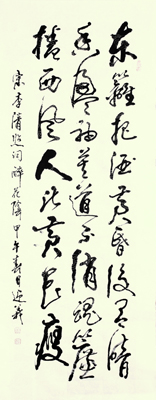 东篱把酒黄昏后有暗
香盈袖莫道不销魂帘
卷西风人比黄花瘦
宋李清照词醉花阴甲午春月